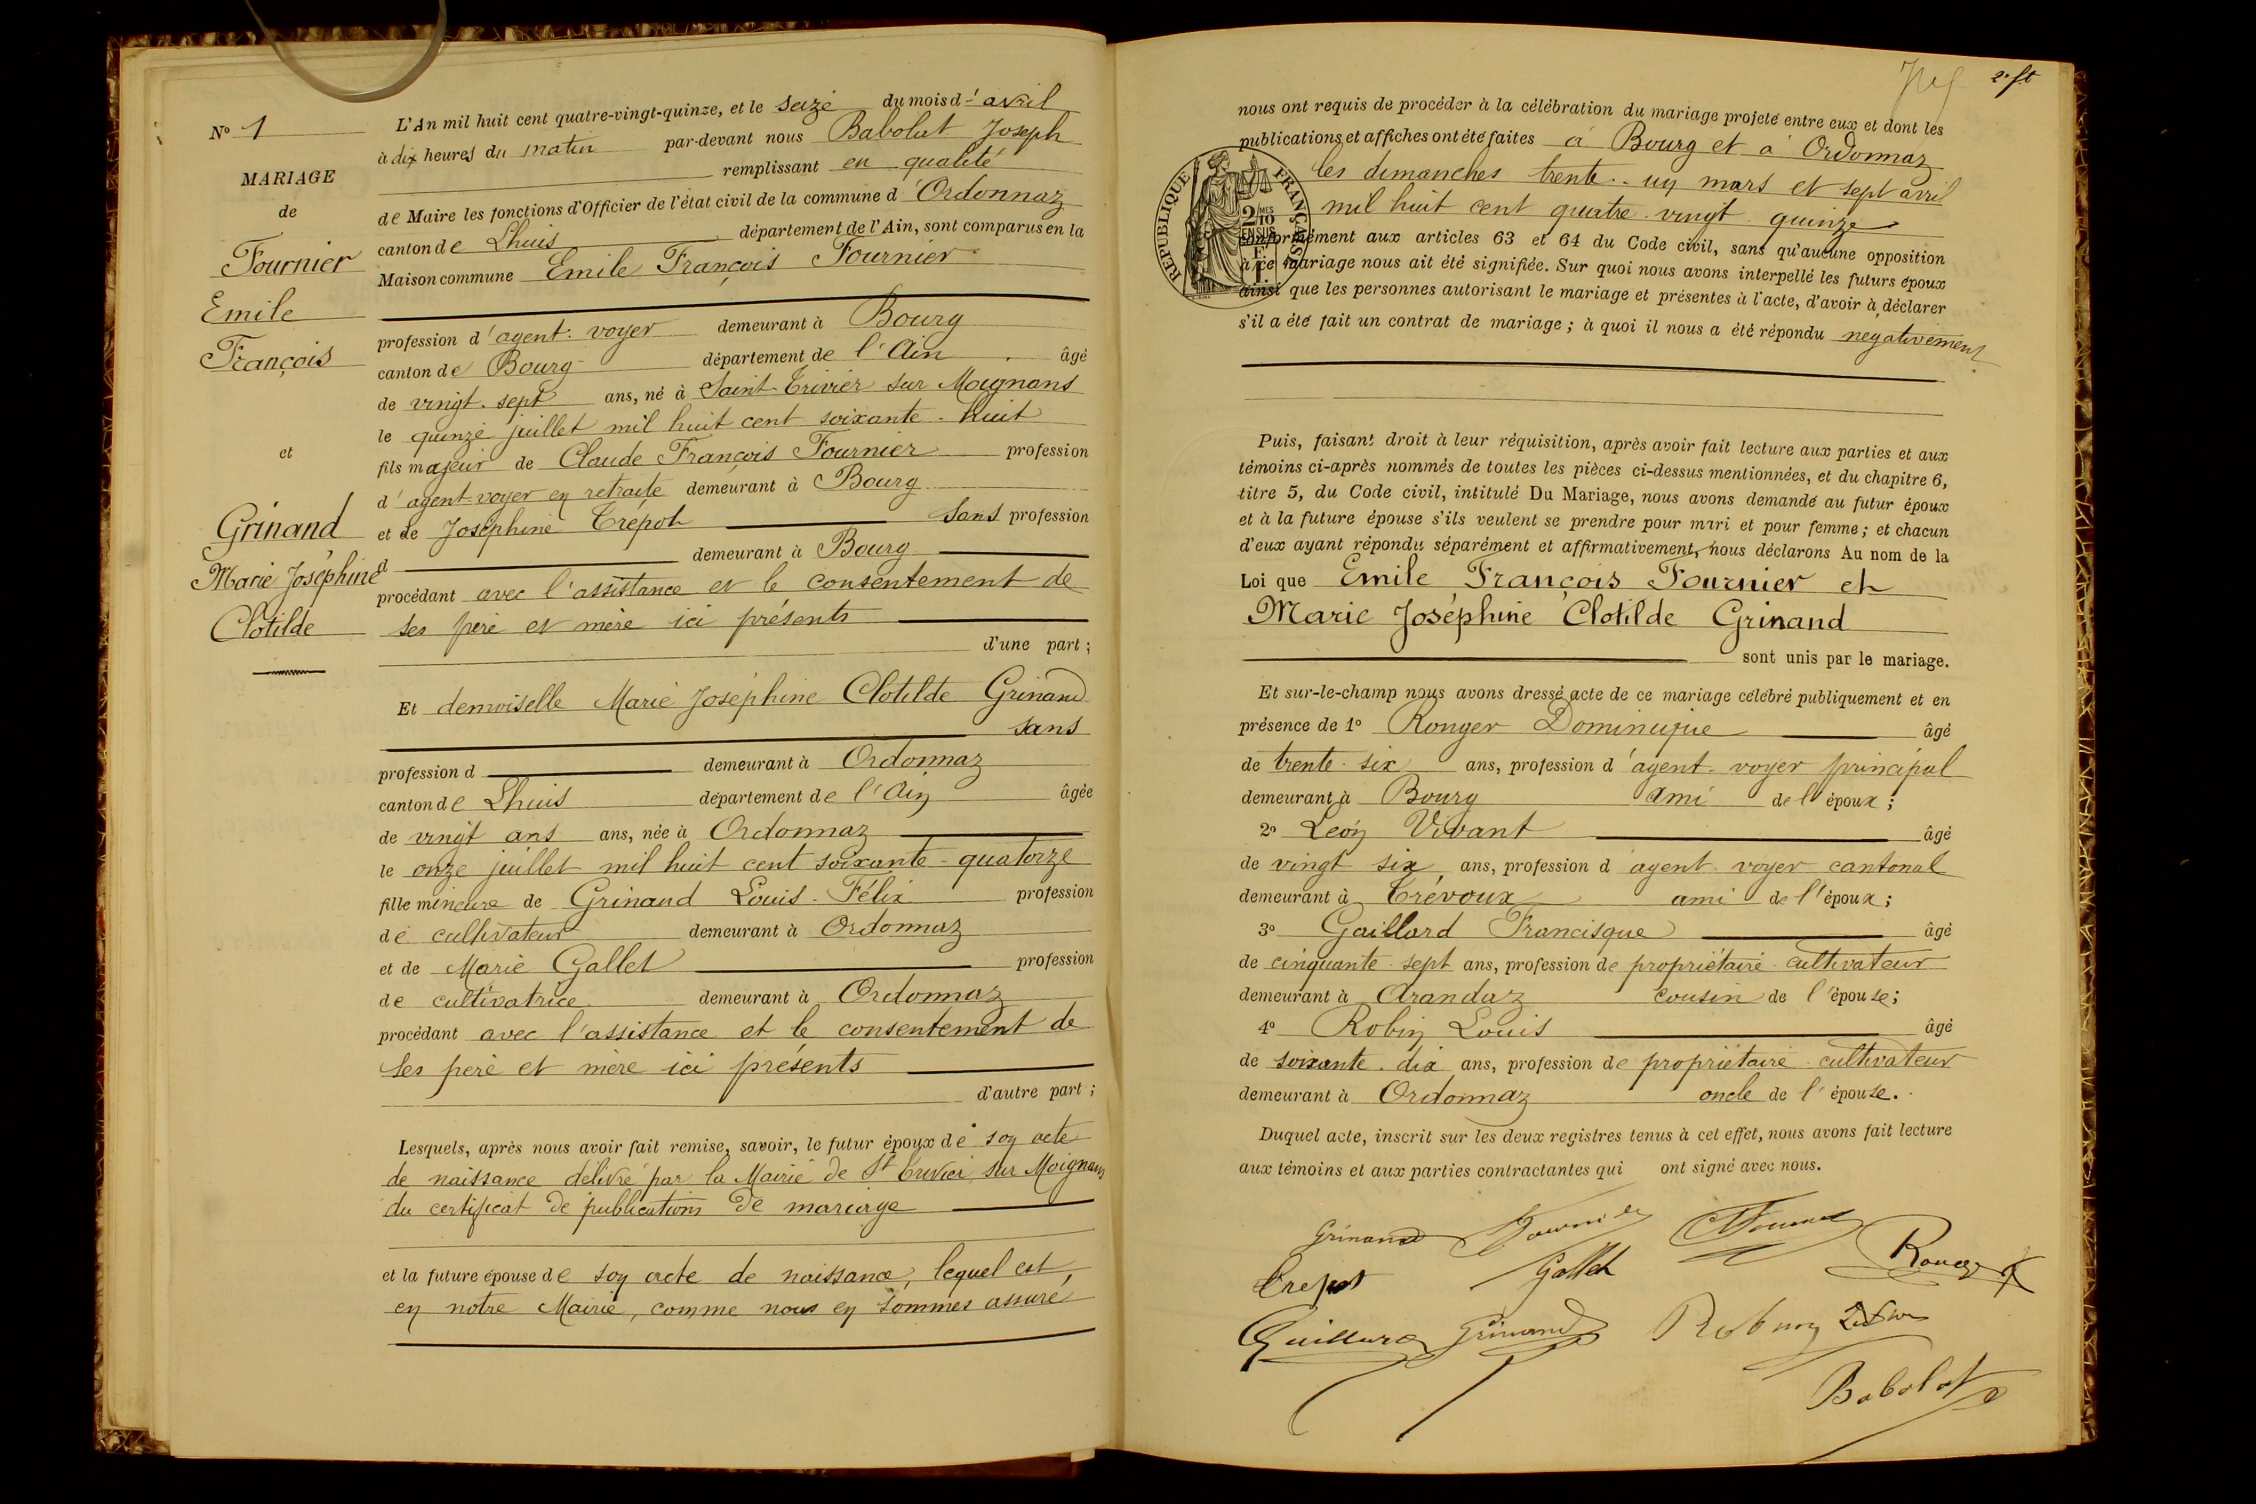 N° 1
MARIAGE
de
Fournier
Emile
François
et
Grinand
Marie Joséphine
Clotilde
L'An mil huit cent quatre-vingt-quinze, et le seize du mois d'avril
à dix heures du matin par-devant nous Babolat Joseph
remplissant en qualité
de Maire les fonctions d'Officier de l'état civil de la commune d'Ordonnaz
canton de Lhuis département de l'Ain, sont comparus en la
Maison commune Emile François Fournier
profession d'agent-voyer demeurant à Bourg
canton de Bourg département de l'Ain âgé
de vingt-sept ans, né à Saint-Trivier sur Moignans
le quinze juillet mil huit cent soixante-huit
fils majeur de Claude François Fournier profession
d'agent-voyer en retraite demeurant à Bourg
et de Joséphine Trépot sans profession
d demeurant à Bourg
procédant avec l'assistance et le consentement de
ses père et mère ici présents
d'une part ;
Et demoiselle Marie Joséphine Clotilde Grinand
sans
profession d demeurant à Ordonnaz
canton de Lhuis département de l'Ain âgée
de vingt ans ans, née à Ordonnaz
le onze juillet mil huit cent soixante-quatorze
fille mineure de Grinand Louis-Félix profession
de cultivateur demeurant à Ordonnaz
et de Marie Gallet profession
de cultivatrice demeurant à Ordonnaz
procédant avec l'assistance et le consentement de
ses père et mère ici présents
d'autre part ;
Lesquels, après nous avoir fait remise, savoir, le futur époux de son acte
de naissance délivré par la Mairie de St Trivier sur Moignans
du certificat de publications de mariage
et la future épouse de son acte de naissance, lequel est,
en notre Mairie, comme nous en sommes assuré
2e ft
nous ont requis de procéder à la célébration du mariage projeté entre eux et dont les
publications et affiches ont été faites à Bourg et à Ordonnaz
les dimanches trente-un mars et sept avril
mil huit cent quatre-vingt-quinze
conformément aux articles 63 et 64 du Code civil, sans qu'aucune opposition
à ce mariage nous ait été signifiée. Sur quoi nous avons interpellé les futurs époux
ainsi que les personnes autorisant le mariage et présentes à l'acte, d'avoir à déclarer
s'il a été fait un contrat de mariage ; à quoi il nous a été répondu négativement
RÉPUBLIQUE FRANÇAISE
2 MES
10
EN SUS
Puis, faisant droit à leur réquisition, après avoir fait lecture aux parties et aux
témoins ci-après nommés de toutes les pièces ci-dessus mentionnées, et du chapitre 6,
titre 5, du Code civil, intitulé Du Mariage, nous avons demandé au futur époux
et à la future épouse s'ils veulent se prendre pour mari et pour femme ; et chacun
d'eux ayant répondu séparément et affirmativement, nous déclarons Au nom de la
Loi que Emile François Fournier et
Marie Joséphine Clotilde Grinand
sont unis par le mariage.
Et sur-le-champ nous avons dressé acte de ce mariage célébré publiquement et en
présence de 1° Rouger Dominique âgé
de trente-six ans, profession d'agent-voyer principal
demeurant à Bourg ami de l'époux ;
2° Léon Vivant âgé
de vingt six ans, profession d'agent-voyer cantonal
demeurant à Trévoux ami de l'époux ;
3° Gaillard Francisque âgé
de cinquante-sept ans, profession de propriétaire-cultivateur
demeurant à Arandaz cousin de l'épouse ;
4° Robin Louis âgé
de soixante-dix ans, profession de propriétaire-cultivateur
demeurant à Ordonnaz oncle de l'épouse.
Duquel acte, inscrit sur les deux registres tenus à cet effet, nous avons fait lecture
aux témoins et aux parties contractantes qui ont signé avec nous.
Grinand Fournier
Trepot Gallet Rouger
Guillard Grinand
Babolat